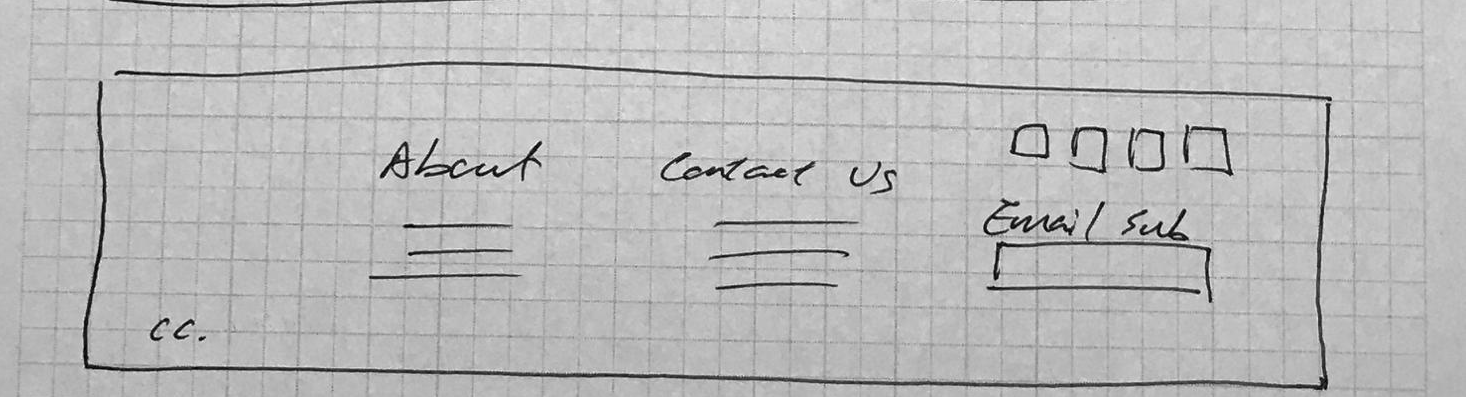 About
Contact Us
Email Sub
cc.